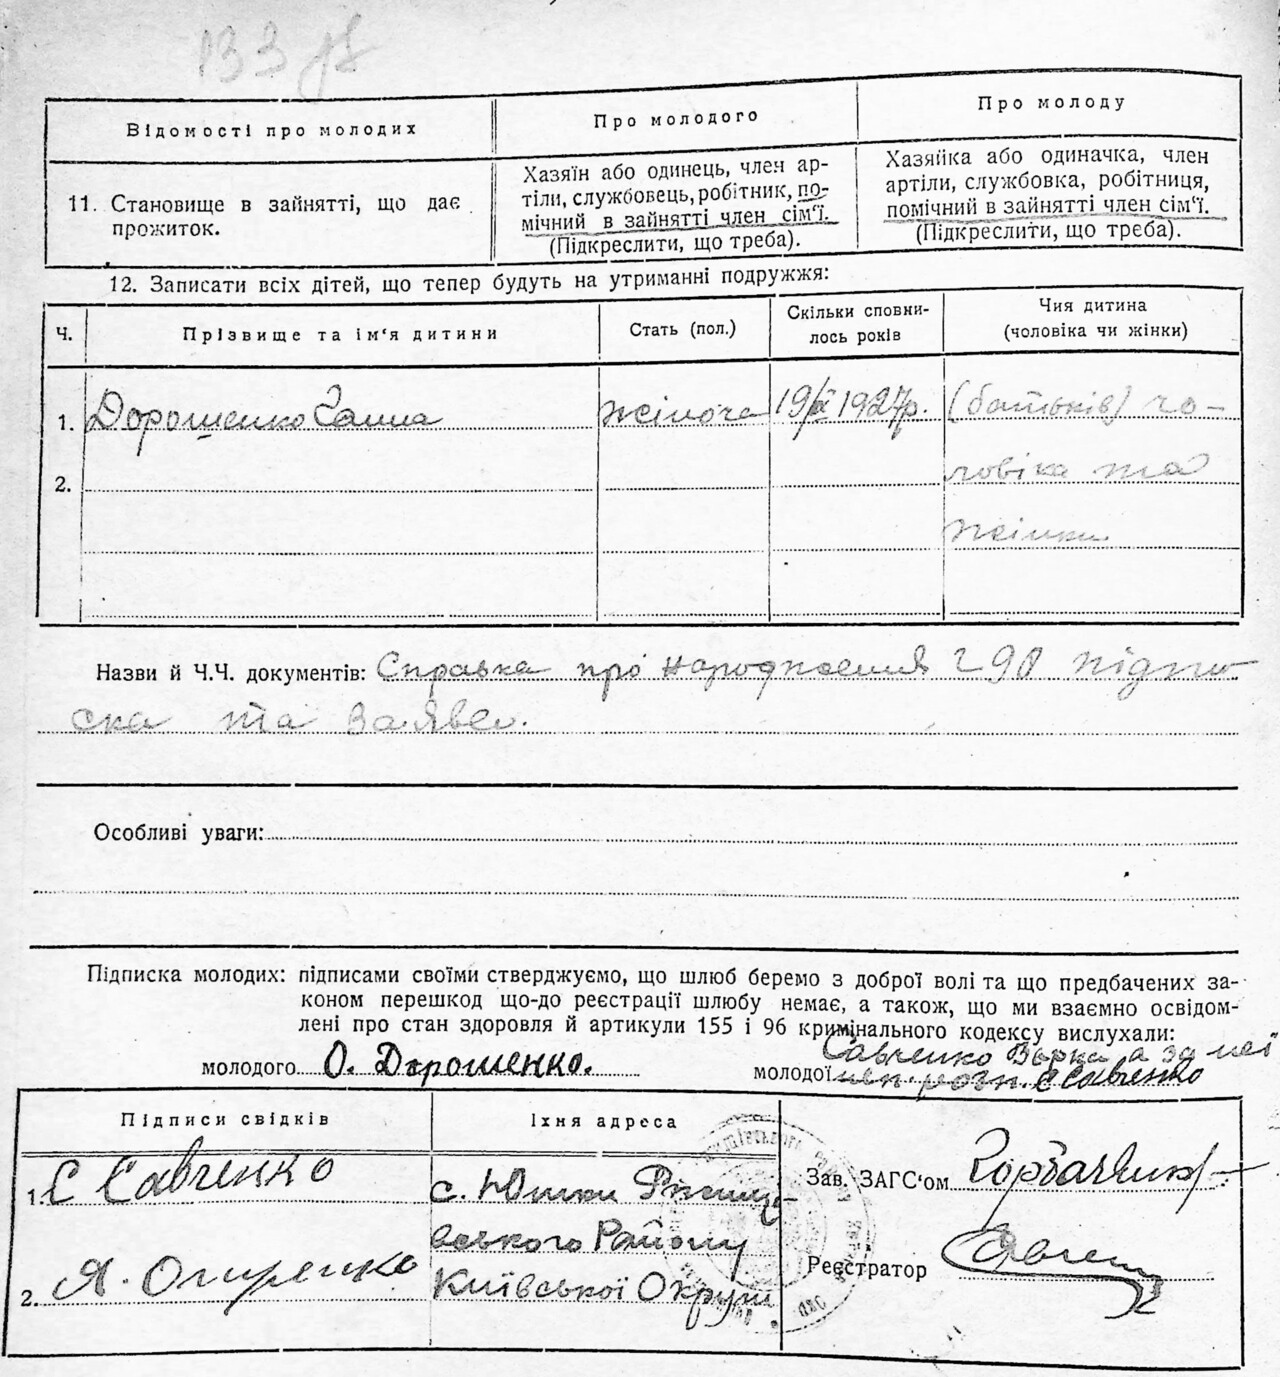 133
Відомості про молодих
Про молодого
Про молоду
11. Становище в зайнятті, що дає прожиток.
Хазяїн або одинець, член ар-
тіли, службовець, робітник, по-
мічний в зайнятті член сім'ї.
(Підкреслити, що треба).
Хазяйка або одиначка, член
артіли, службовка, робітниця,
помічний в зайнятті член сім'ї.
(Підкреслити, що треба).
12. Записати всіх дітей, що тепер будуть на утриманні подружжя:
Ч.
Прізвище та ім'я дитини
Стать (пол.)
Скільки сповни-
лось років
Чия дитина
(чоловіка чи жінки)
1. Дорошенко Ганна
жіноча
19/ІХ 1927р.
(батьків) чо-
ловіка та
жінки
2.
Назви й Ч.Ч. документів: Справка про народження 290 підпи
ска та заяве.
Особливі уваги:
Підписка молодих: підписами своїми стверджуємо, що шлюб беремо з доброї волі та що предбачених за-
коном перешкод що-до реєстрації шлюбу немає, а також, що ми взаємно освідом-
лені про стан здоровля й артикули 155 і 96 кримінального кодексу вислухали:
молодого О. Дорошенко.
Савченко Вірка а за неї
молодої неп. розп. Є Савченко
Підписи свідків
Їхня адреса
1. Є Савченко
с. Юшки Ржищ-
івського Району
Київської Округи
2. Я. Огиренко
Зав. ЗАГС'ом
Реєстратор